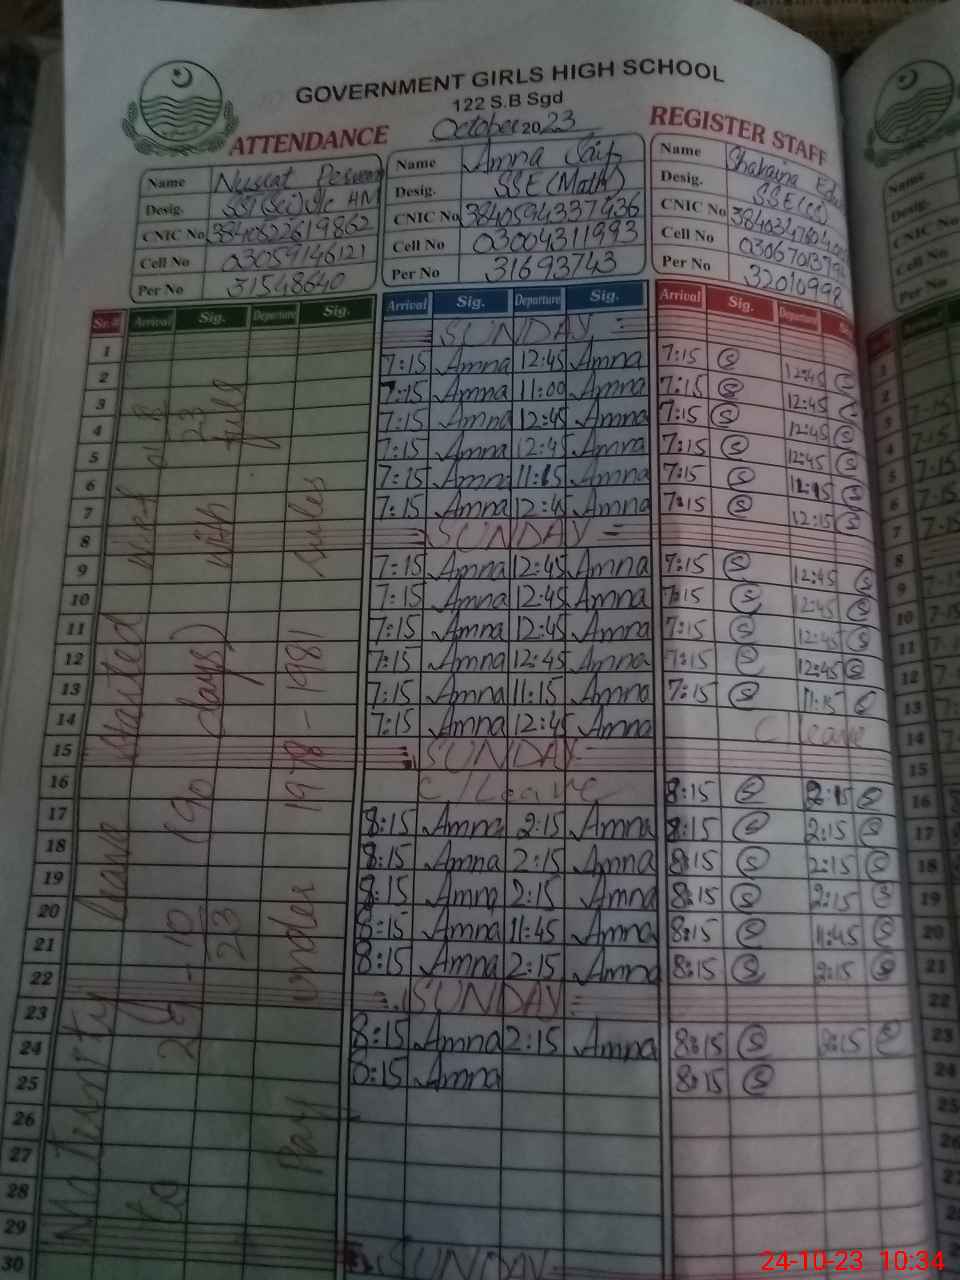 GOVERNMENT GIRLS HIGH SCHOOL
122 S.B Sgd
ATTENDANCE October 2023 REGISTER STAFF
Name Nusrat
Desig. SST(Sci) I/c HM
CNIC No 3840622619862
Cell No 03059146121
Per No 31548640
Name Amna
Desig. SSE(Math)
CNIC No 3840594337936
Cell No 03004311993
Per No 31693743
Name
Desig. SSE(CS)
CNIC No
Cell No
Per No 32010998
Sr.# Arrival Sig. Departure Sig. Arrival Sig. Departure Sig. Arrival Sig. Departure
1 SUNDAY
2 7:15 Amna 12:45 Amna 7:15 S 12:45 S
3 7:15 Amna 11:00 Amna 7:15 S 12:45
4 7:15 Amna 12:45 Amna 7:15 S 12:45 S
5 7:15 Amna 12:45 Amna 7:15 S 12:45 S
6 7:15 Amna 11:15 Amna 7:15 S S
7 7:15 Amna 12:45 Amna 7:15 S 12:15 S
8 SUNDAY
9 7:15 Amna 12:45 Amna 7:15 S 12:45 S
10 7:15 Amna 12:45 Amna 7:15 S 12:45 S
11 7:15 Amna 12:45 Amna 7:15 S 12:45 S
12 7:15 Amna 12:45 Amna 7:15 S 12:45 S
13 7:15 Amna 11:15 Amna 7:15 S 11:15 S
14 7:15 Amna 12:45 Amna C/leave
15 SUNDAY
16 C/Leave 8:15 S 2:15 S
17 8:15 Amna 2:15 Amna 8:15 S 2:15 S
18 8:15 Amna 2:15 Amna 8:15 S 2:15 S
19 8:15 Amna 2:15 Amna 8:15 S 2:15 S
20 8:15 Amna 11:45 Amna 8:15 S 11:45 S
21 8:15 Amna 2:15 Amna 8:15 S 2:15 S
22 SUNDAY
23 8:15 Amna 2:15 Amna 8:15 S S
24 8:15 Amna 8:15 S
25
26
27
28
29 SUNDAY
30
Maternity leave started w.e.f
to 10 23 (90 days) with full
Pay under 1978-1981 rules
24-10-23 10:34